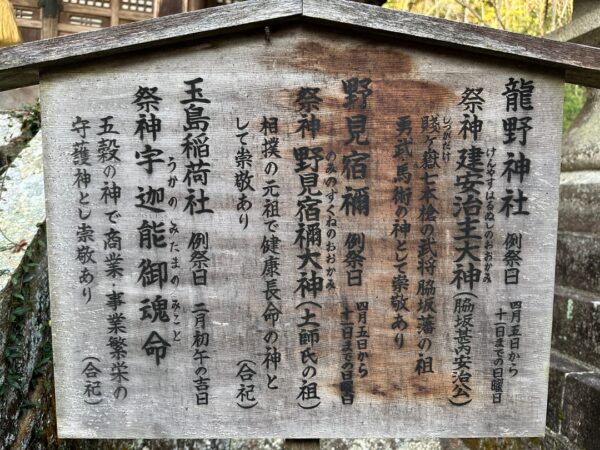 龍野神社 例祭日 四月五日から
十一日までの日曜日
けんやすはるぬしのおおかみ
祭神 建安治主大神(脇坂甚内安治公)
しづがたけ
賤ヶ嶽七本槍の武将 脇坂藩の祖
勇武馬術の神として崇敬あり
野見宿禰 例祭日 四月五日から
十一日までの日曜日
のみのすくねのおおかみ
祭神 野見宿禰大神(土師氏の祖)
相撲の元祖で健康長命の神と
して崇敬あり (合祀)
玉島稲荷社 例祭日 二月初午の吉日
うかのみたまのみこと
祭神 宇迦能御魂命
五穀の神で商業・事業繁栄の
守護神とし崇敬あり (合祀)